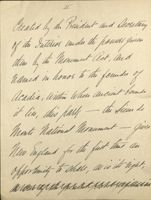 Created by the President and Secretary
of the Interior under the powers given
them by the Monument Act, and
named in honor to the founder of
Acadia, within whose ancient bounds
it lies, this park — the Sieur de
Monts National Monument — gives
New England for the first time an
opportunity to share, as is its right,